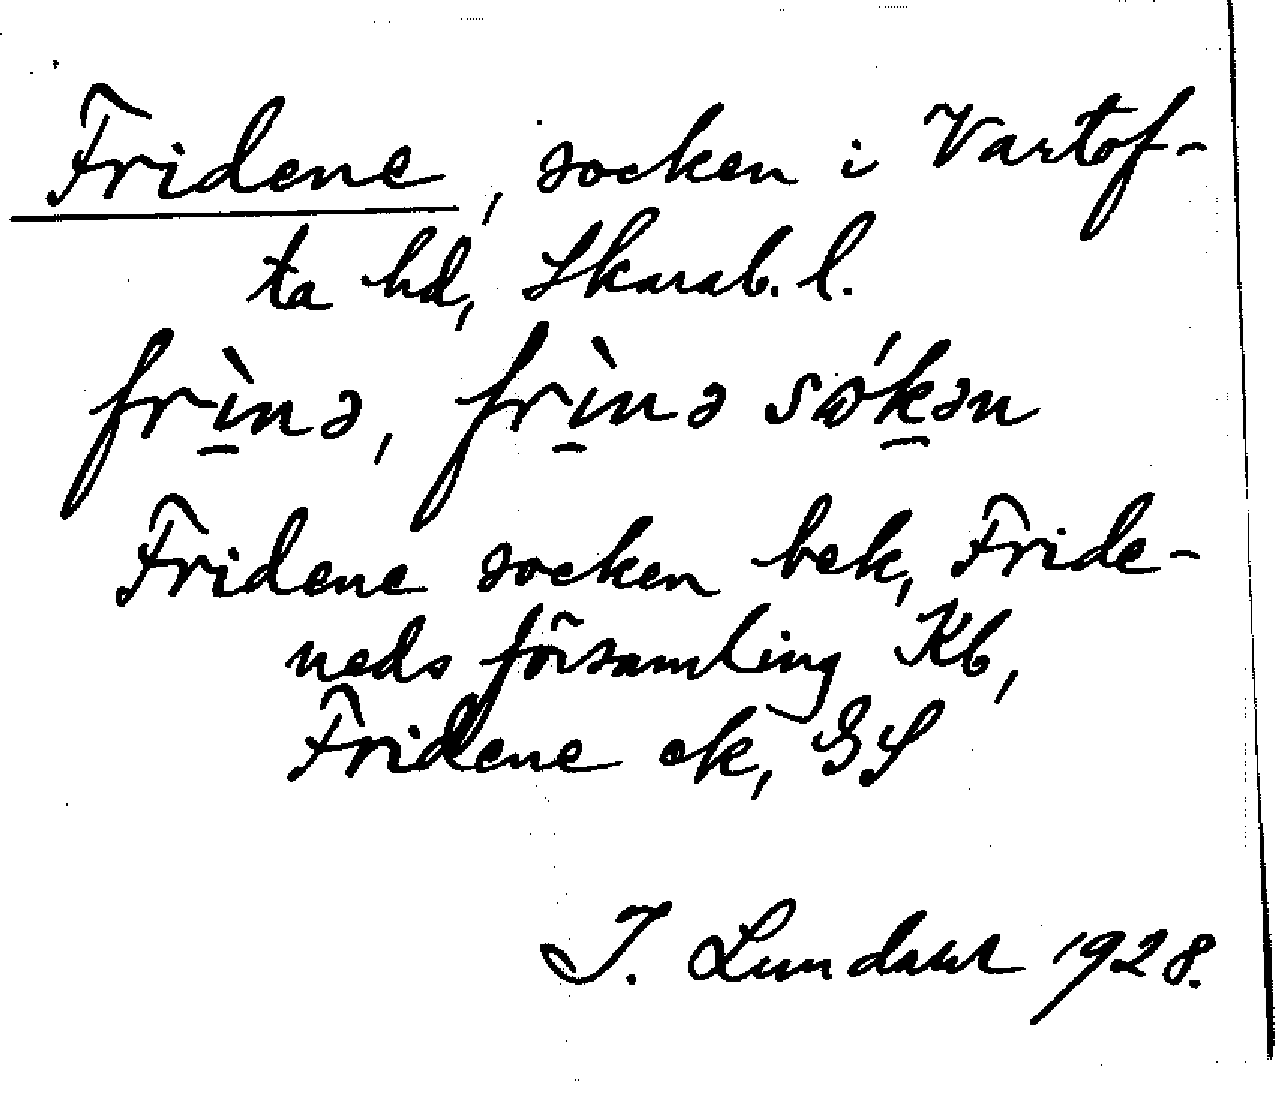 Fridene, socken i Vartof-
ta hd, Skarab. l.
frì̱nə, frì̱nə sǿḵən
Fridene socken bek, Fride-
neds församling Kb,
Fridene ek, GS
I. Lundahl 1928.